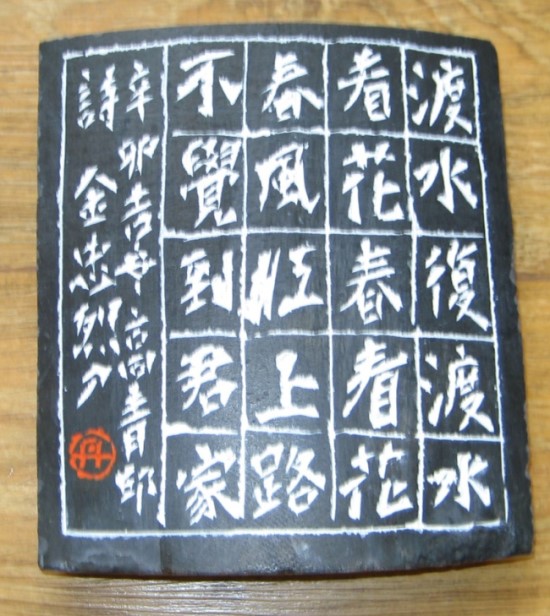 渡水復渡水
看花春看花
春風江上路
不覺到君家
辛卯 高青邱
詩 金忠烈刀